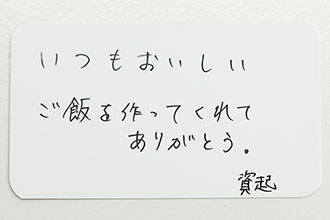 いつもおいしい
ご飯を作ってくれて
ありがとう。
資起